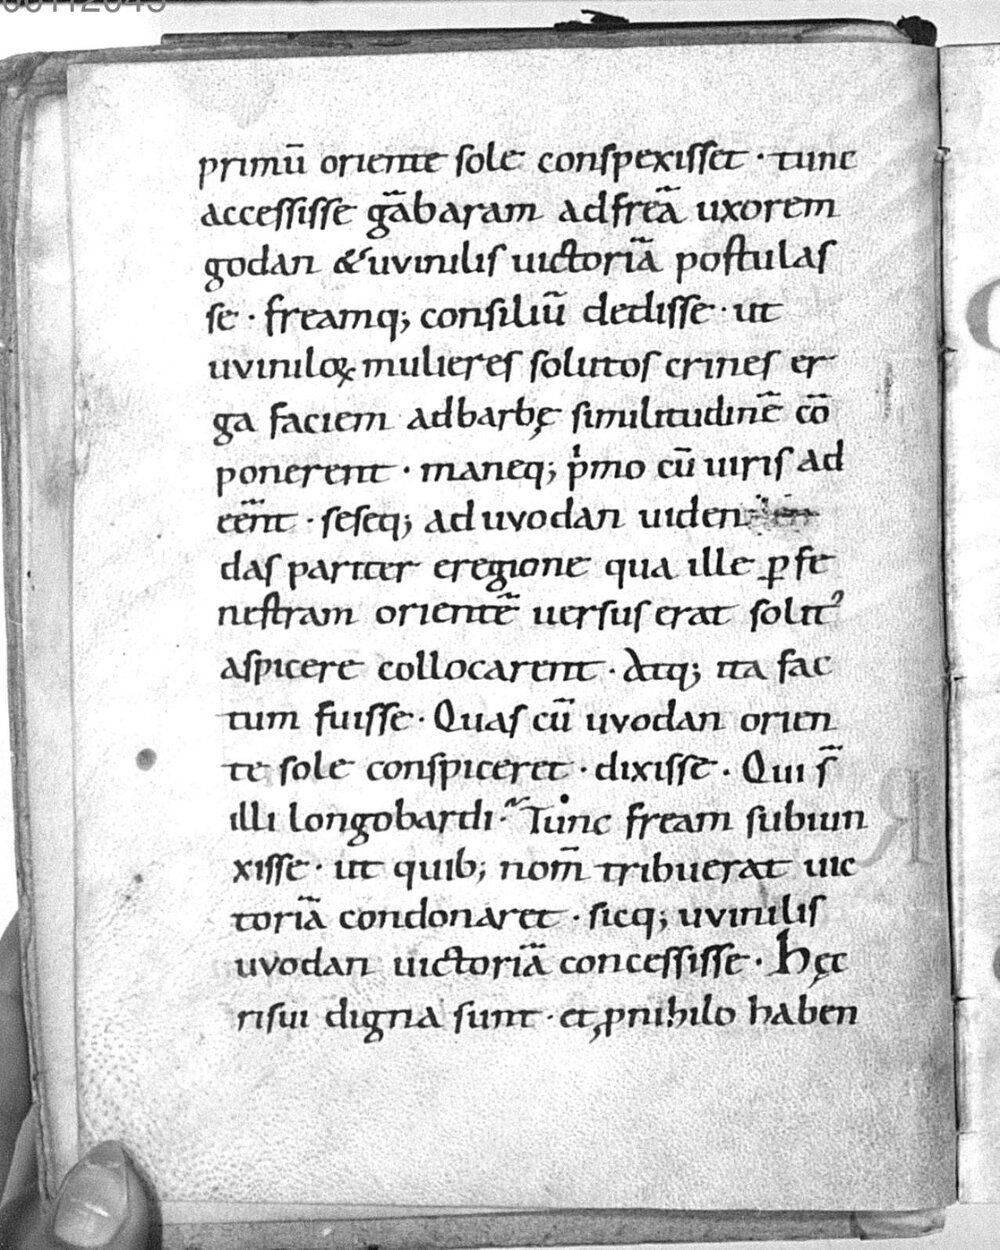 00112043
primū oriente sole conspexisset · tunc
accessisse gābaram adfreā uxorem
godan & uvinilis uictoriā postulas
se · freamq; consiliū dedisse · ut
uviniloꝝ mulieres solutos crines er
ga faciem adbarbę similitudinē cō
ponerent · maneq; pͥmo cū uiris ad
eēnt · seseq; ad uvodan uiden
das pariter eregione qua ille ꝑ fe
nestram orientē uersus erat solitꝰ
aspicere collocarent · Atq; ita fac
tum fuisse · Quas cū uvodan orien
te sole conspiceret · dixisse · Qui s̄
illi longobardi · Tunc fream subiun
xisse · ut quib; nom̄ tribuerat uic
toriā condonaret · sicq; uvinilis
uvodan uictoriā concessisse · hęc
risui digna sunt · et ꝓ nihilo haben